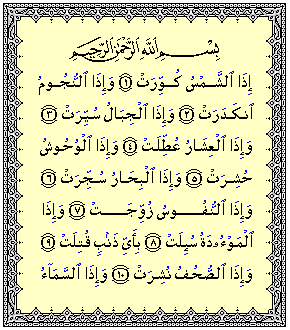 بِسْمِ ٱللَّهِ ٱلرَّحْمَٰنِ ٱلرَّحِيمِ
إِذَا ٱلشَّمْسُ كُوِّرَتْ ١ وَإِذَا ٱلنُّجُومُ
ٱنكَدَرَتْ ٢ وَإِذَا ٱلْجِبَالُ سُيِّرَتْ ٣
وَإِذَا ٱلْعِشَارُ عُطِّلَتْ ٤ وَإِذَا ٱلْوُحُوشُ
حُشِرَتْ ٥ وَإِذَا ٱلْبِحَارُ سُجِّرَتْ ٦
وَإِذَا ٱلنُّفُوسُ زُوِّجَتْ ٧ وَإِذَا
ٱلْمَوْءُۥدَةُ سُئِلَتْ ٨ بِأَيِّ ذَنۢبٍ قُتِلَتْ ٩
وَإِذَا ٱلصُّحُفُ نُشِرَتْ ١٠ وَإِذَا ٱلسَّمَآءُ